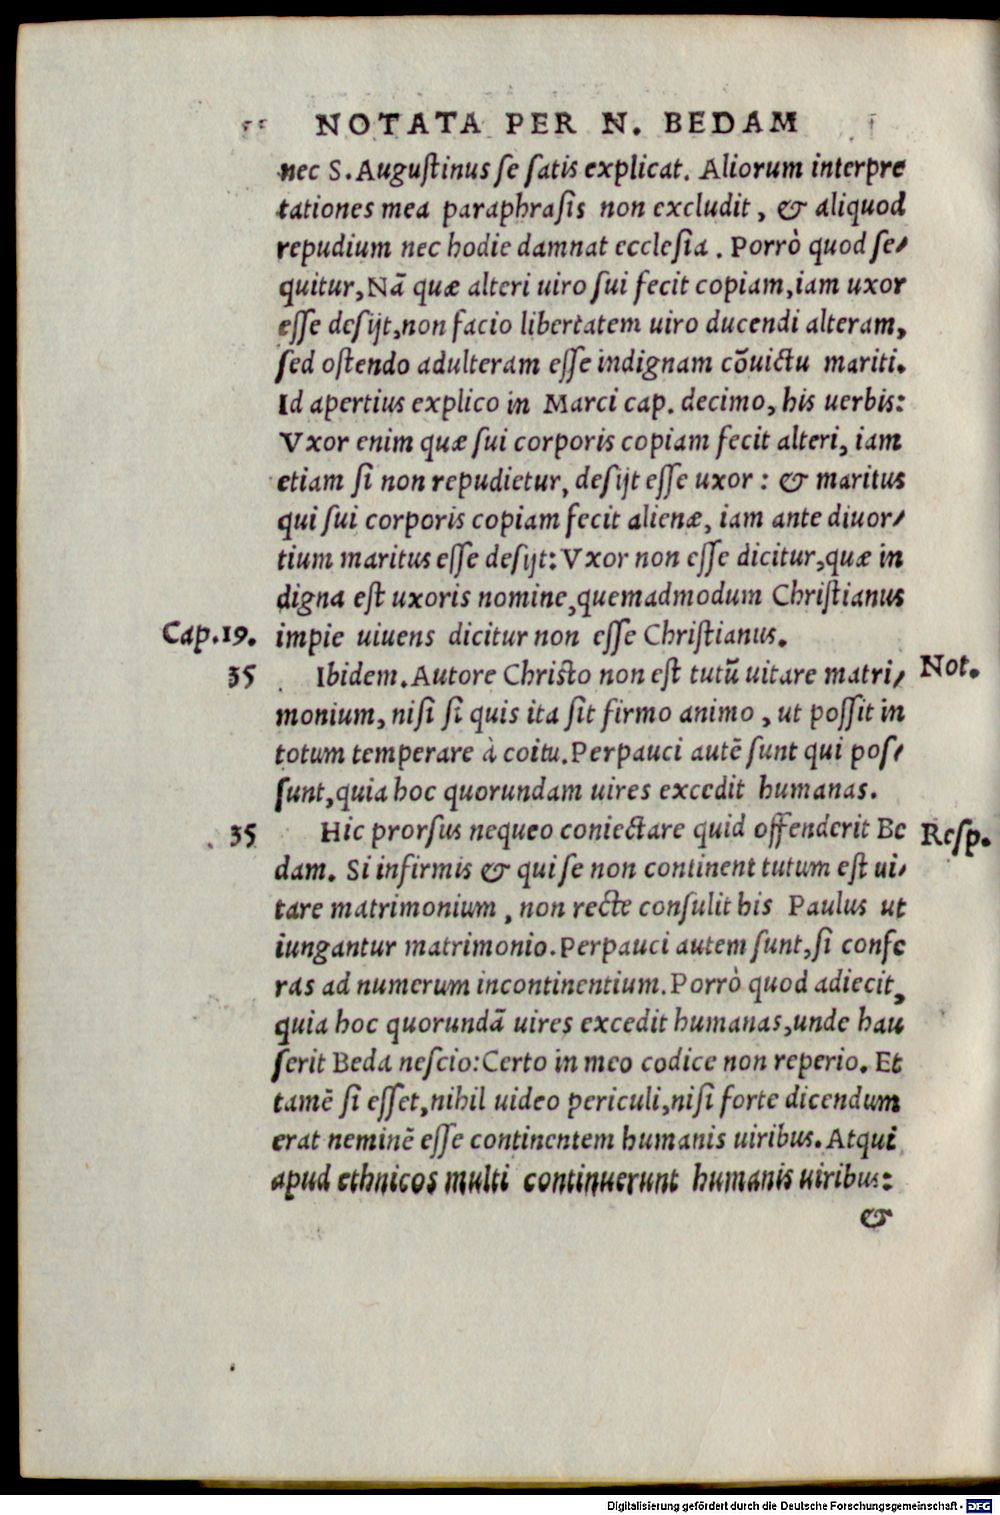 NOTATA PER N. BEDAM
nec S. Augustinus se satis explicat. Aliorum interpre
tationes mea paraphrasis non excludit, & aliquod
repudium nec hodie damnat ecclesia. Porrò quod se-
quitur, Nā quæ alteri uiro sui fecit copiam, iam uxor
esse desijt, non facio libertatem uiro ducendi alteram,
sed ostendo adulteram esse indignam cōuictu mariti.
Id apertius explico in Marci cap. decimo, his uerbis:
Vxor enim quæ sui corporis copiam fecit alteri, iam
etiam si non repudietur, desijt esse uxor: & maritus
qui sui corporis copiam fecit alienæ, iam ante diuor-
tium maritus esse desijt: Vxor non esse dicitur, quæ in
digna est uxoris nomine, quemadmodum Christianus
Cap. 19. impie uiuens dicitur non esse Christianus.
35 Ibidem. Autore Christo non est tutū uitare matri- Not.
monium, nisi si quis ita sit firmo animo, ut possit in
totum temperare à coitu. Perpauci autē sunt qui pos-
sunt, quia hoc quorundam uires excedit humanas.
35 Hic prorsus nequeo coniectare quid offenderit Be Resp.
dam. Si infirmis & qui se non continent tutum est ui-
tare matrimonium, non recte consulit his Paulus ut
iungantur matrimonio. Perpauci autem sunt, si confe
ras ad numerum incontinentium. Porrò quod adiecit,
quia hoc quorundā uires excedit humanas, unde hau
serit Beda nescio: Certo in meo codice non reperio. Et
tamē si esset, nihil uideo periculi, nisi forte dicendum
erat neminē esse continentem humanis uiribus. Atqui
apud ethnicos multi continuerunt humanis uiribus:
&
Digitalisierung gefördert durch die Deutsche Forschungsgemeinschaft - DFG